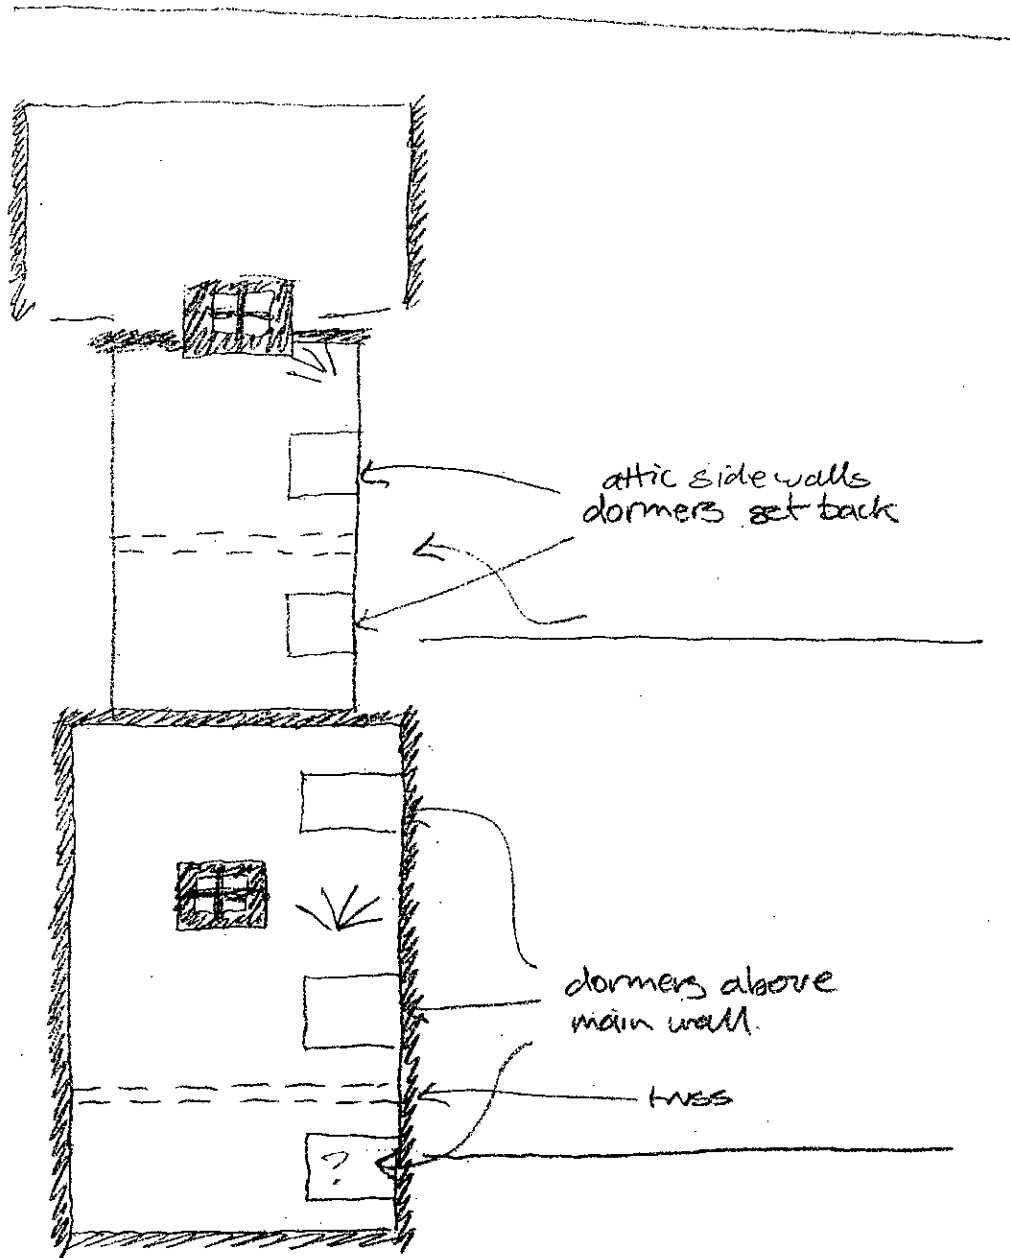 attic side walls
dormers set back
dormers above
main wall.
truss
?